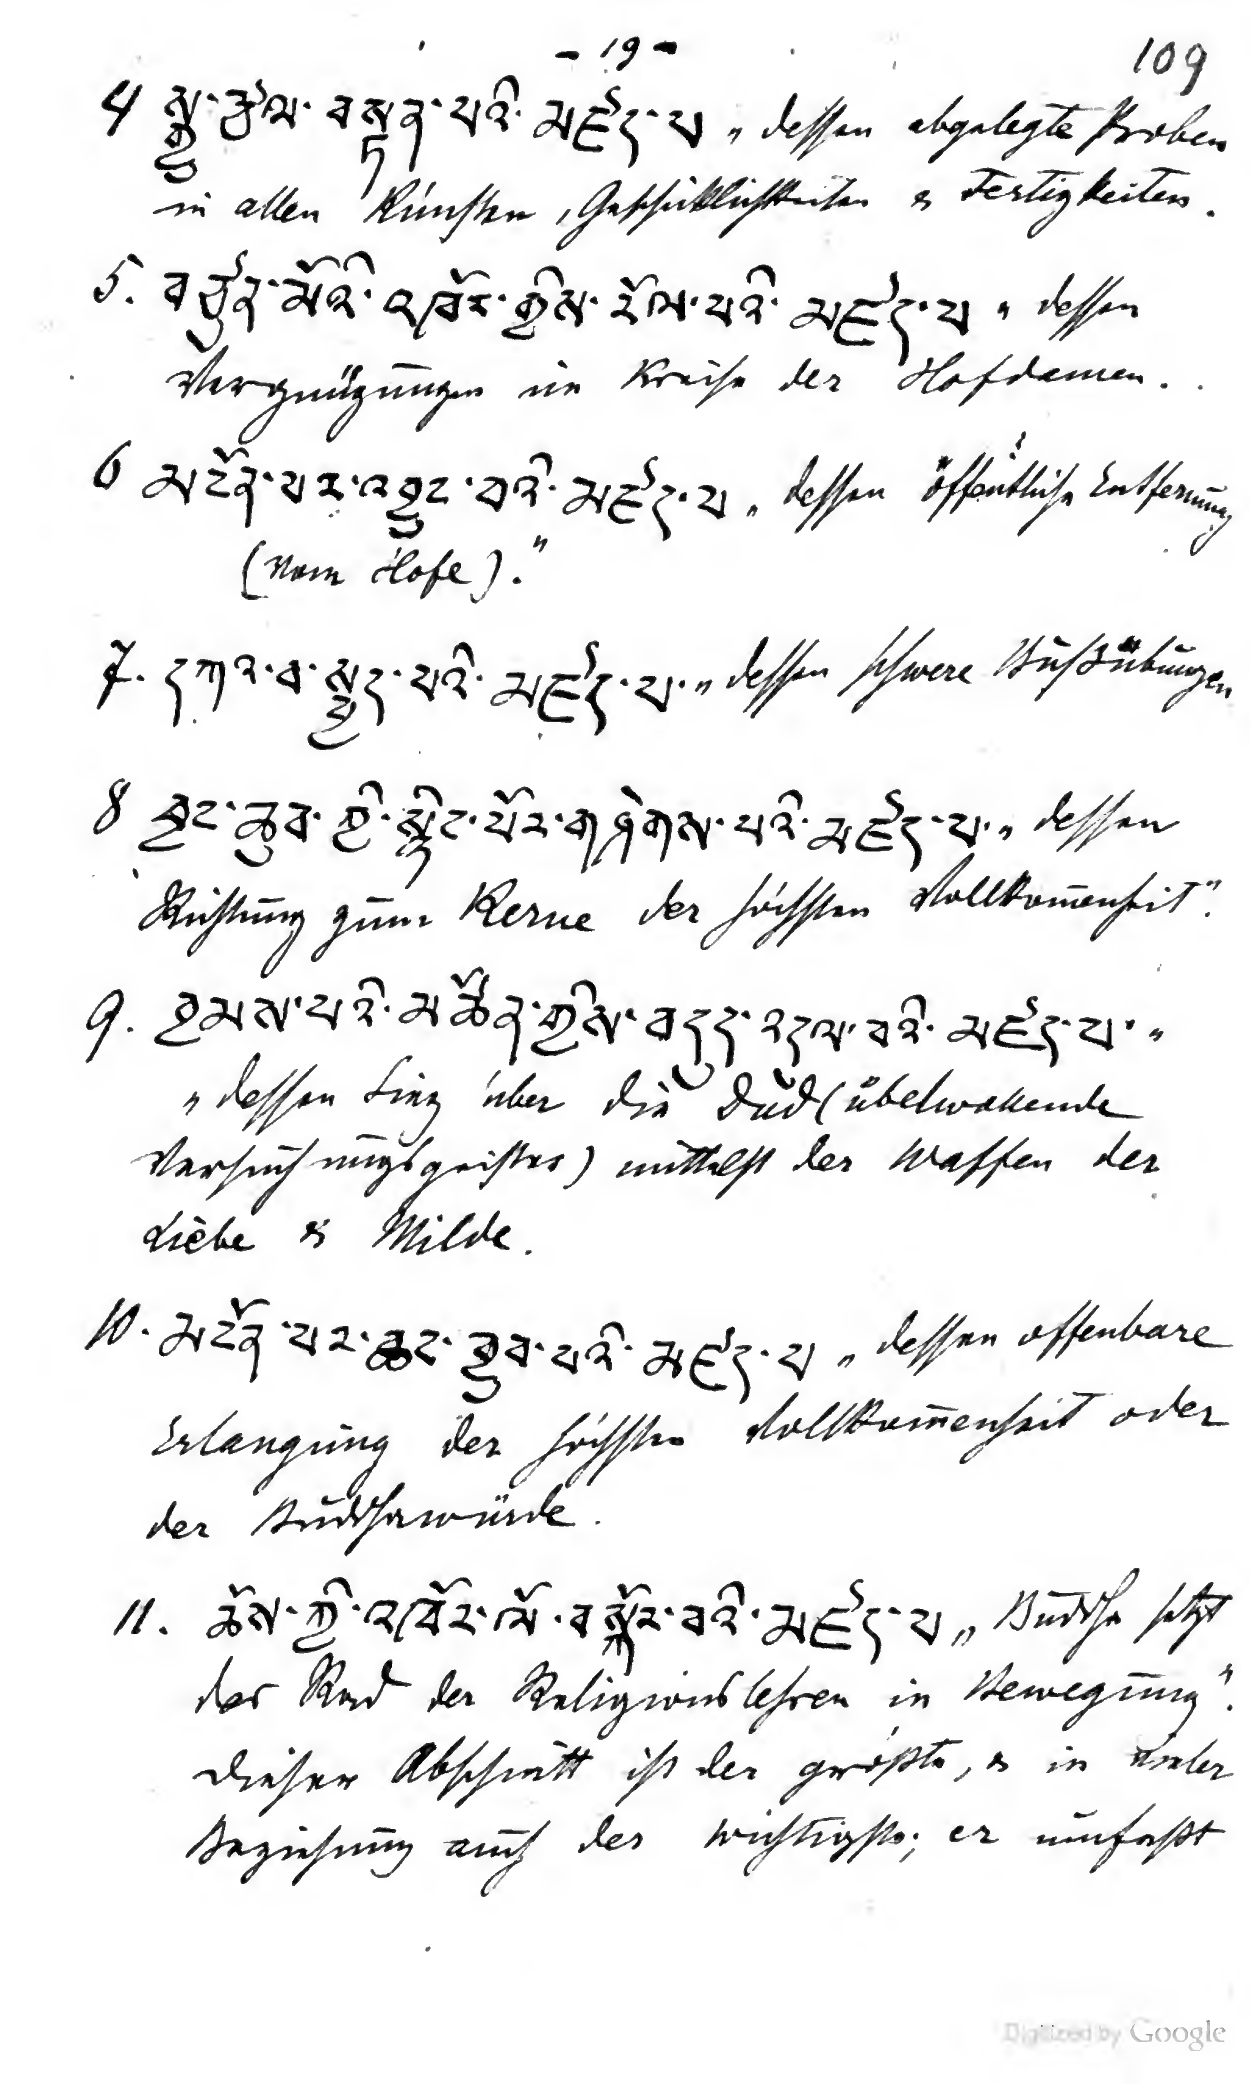 - 19 - 109
4 སྒྱུ་རྩལ་བསྟན་པའི་མཛད་པ „ dessen abgelegte Proben
in allen Künsten, Geschicklichkeiten & Fertigkeiten.
5. བཙུན་མོའི་འཁོར་གྱིས་རོལ་པའི་མཛད་པ „ dessen
Vergnügungen im Kreise der Hofdamen.
6 མངོན་པར་འབྱུང་བའི་མཛད་པ „ dessen öffentliche Entfernung
(vom Hofe)."
7. དཀའ་བ་སྤྱད་པའི་མཛད་པ་ „ dessen schwere Bußübungen
8 བྱང་ཆུབ་ཀྱི་སྙིང་པོར་གཤེགས་པའི་མཛད་པ་ „ dessen
Richtung zum Kerne der höchsten Vollkom̄enheit".
9. བྱམས་པའི་མཚོན་གྱིས་བདུད་འདུལ་བའི་མཛད་པ་ „
„ dessen Sieg über die Dud (übelwollende
Versuchungsgeister) mittelst der Waffen der
Liebe & Milde.
10. མངོན་པར་ཆང་ཆུབ་པའི་མཛད་པ „ dessen offenbare
Erlangung der höchsten Vollkom̄enheit oder
der Buddhawürde.
11. ཆོས་ཀྱི་འཁོར་ལོ་བསྐོར་བའི་མཛད་པ „ Buddha setzt
das Rad der Religionslehren in Bewegung".
Dieser Abschnitt ist der größte, & in vieler
Beziehung auch der wichtigste; er umfaßt
Digitized by Google